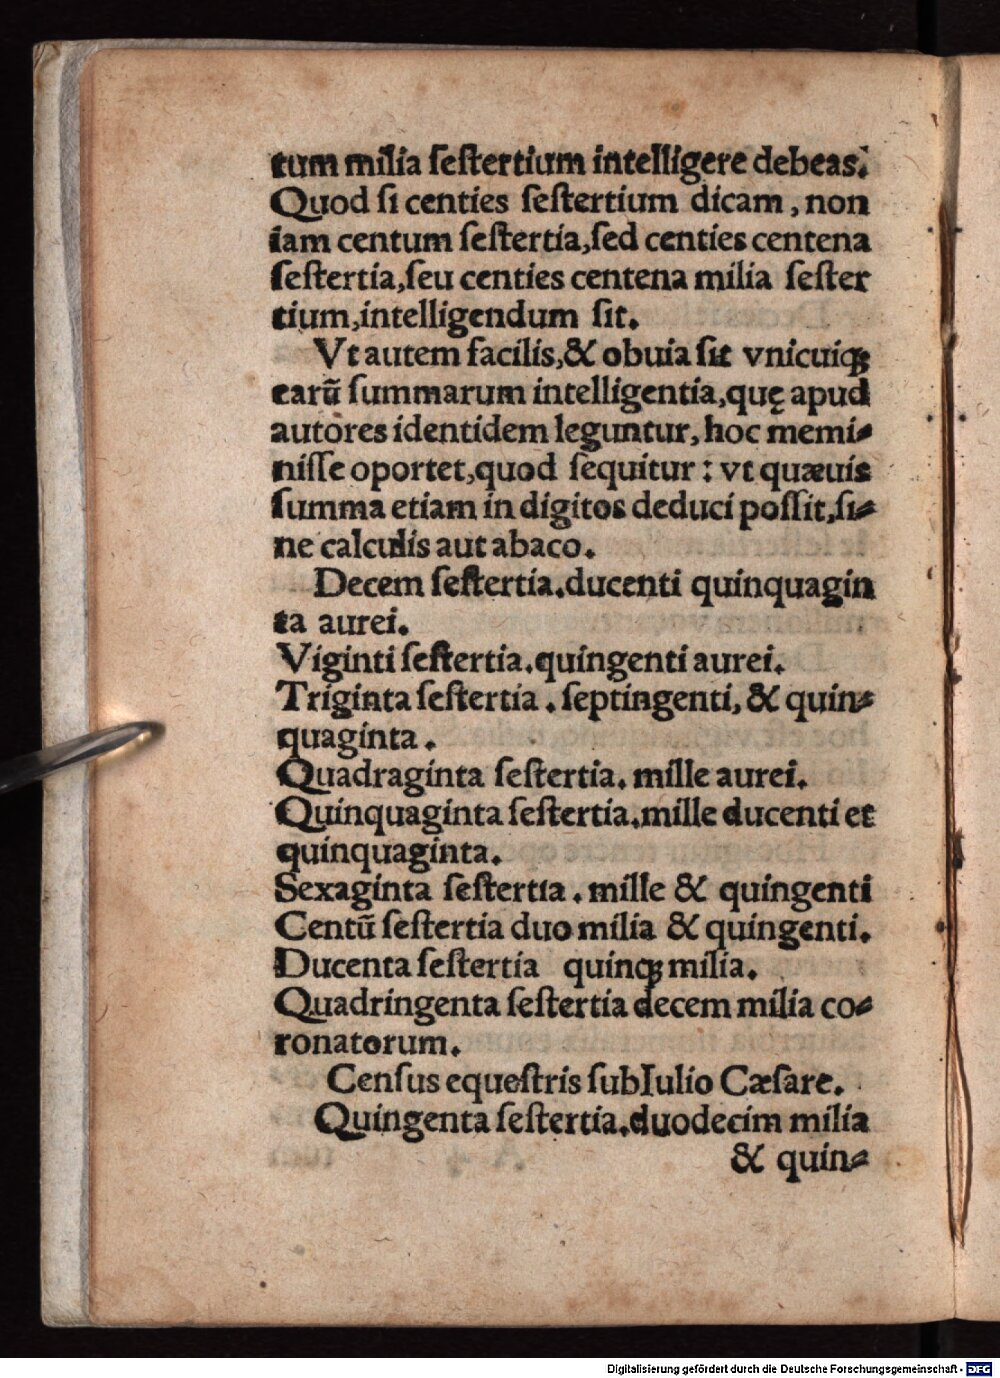 tum milia ſeſtertium intelligere debeas.
Quod ſi centies ſeſtertium dicam, non
iam centum ſeſtertia,ſed centies centena
ſeſtertia,ſeu centies centena milia ſeſter
tium,intelligendum ſit.
Vt autem facilis,& obuia ſit vnicuiqꝫ
earū ſummarum intelligentia,quę apud
autores identidem leguntur, hoc memi⸗
niſſe oportet,quod ſequitur: vt quæuis
ſumma etiam in digitos deduci poſſit,ſi⸗
ne calculis aut abaco.
Decem ſeſtertia.ducenti quinquagin
ta aurei.
Viginti ſeſtertia.quingenti aurei.
Triginta ſeſtertia. ſeptingenti, & quin⸗
quaginta.
Quadraginta ſeſtertia. mille aurei.
Quinquaginta ſeſtertia.mille ducenti et
quinquaginta.
Sexaginta ſeſtertia. mille & quingenti
Centū ſeſtertia duo milia & quingenti.
Ducenta ſeſtertia quinqꝫ milia.
Quadringenta ſeſtertia decem milia co⸗
ronatorum.
Cenſus equeſtris ſub Iulio Cæſare.
Quingenta ſeſtertia.duodecim milia
& quin⸗
Digitalisierung gefördert durch die Deutsche Forschungsgemeinschaft - DFG